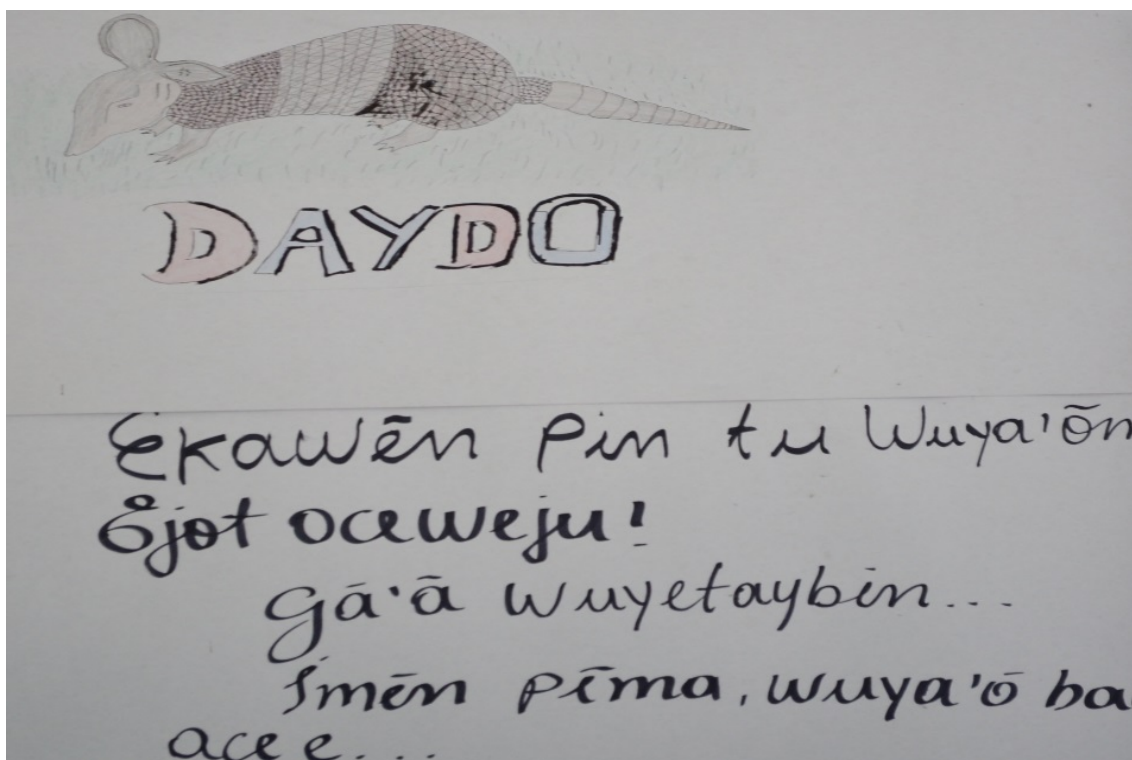 DAYDO
Ekawēn pin tu Wuya'õn
Ejot oceweju!
Gā'ā wuyetaybin...
Imēn pīma, wuya'õ ba
acee...